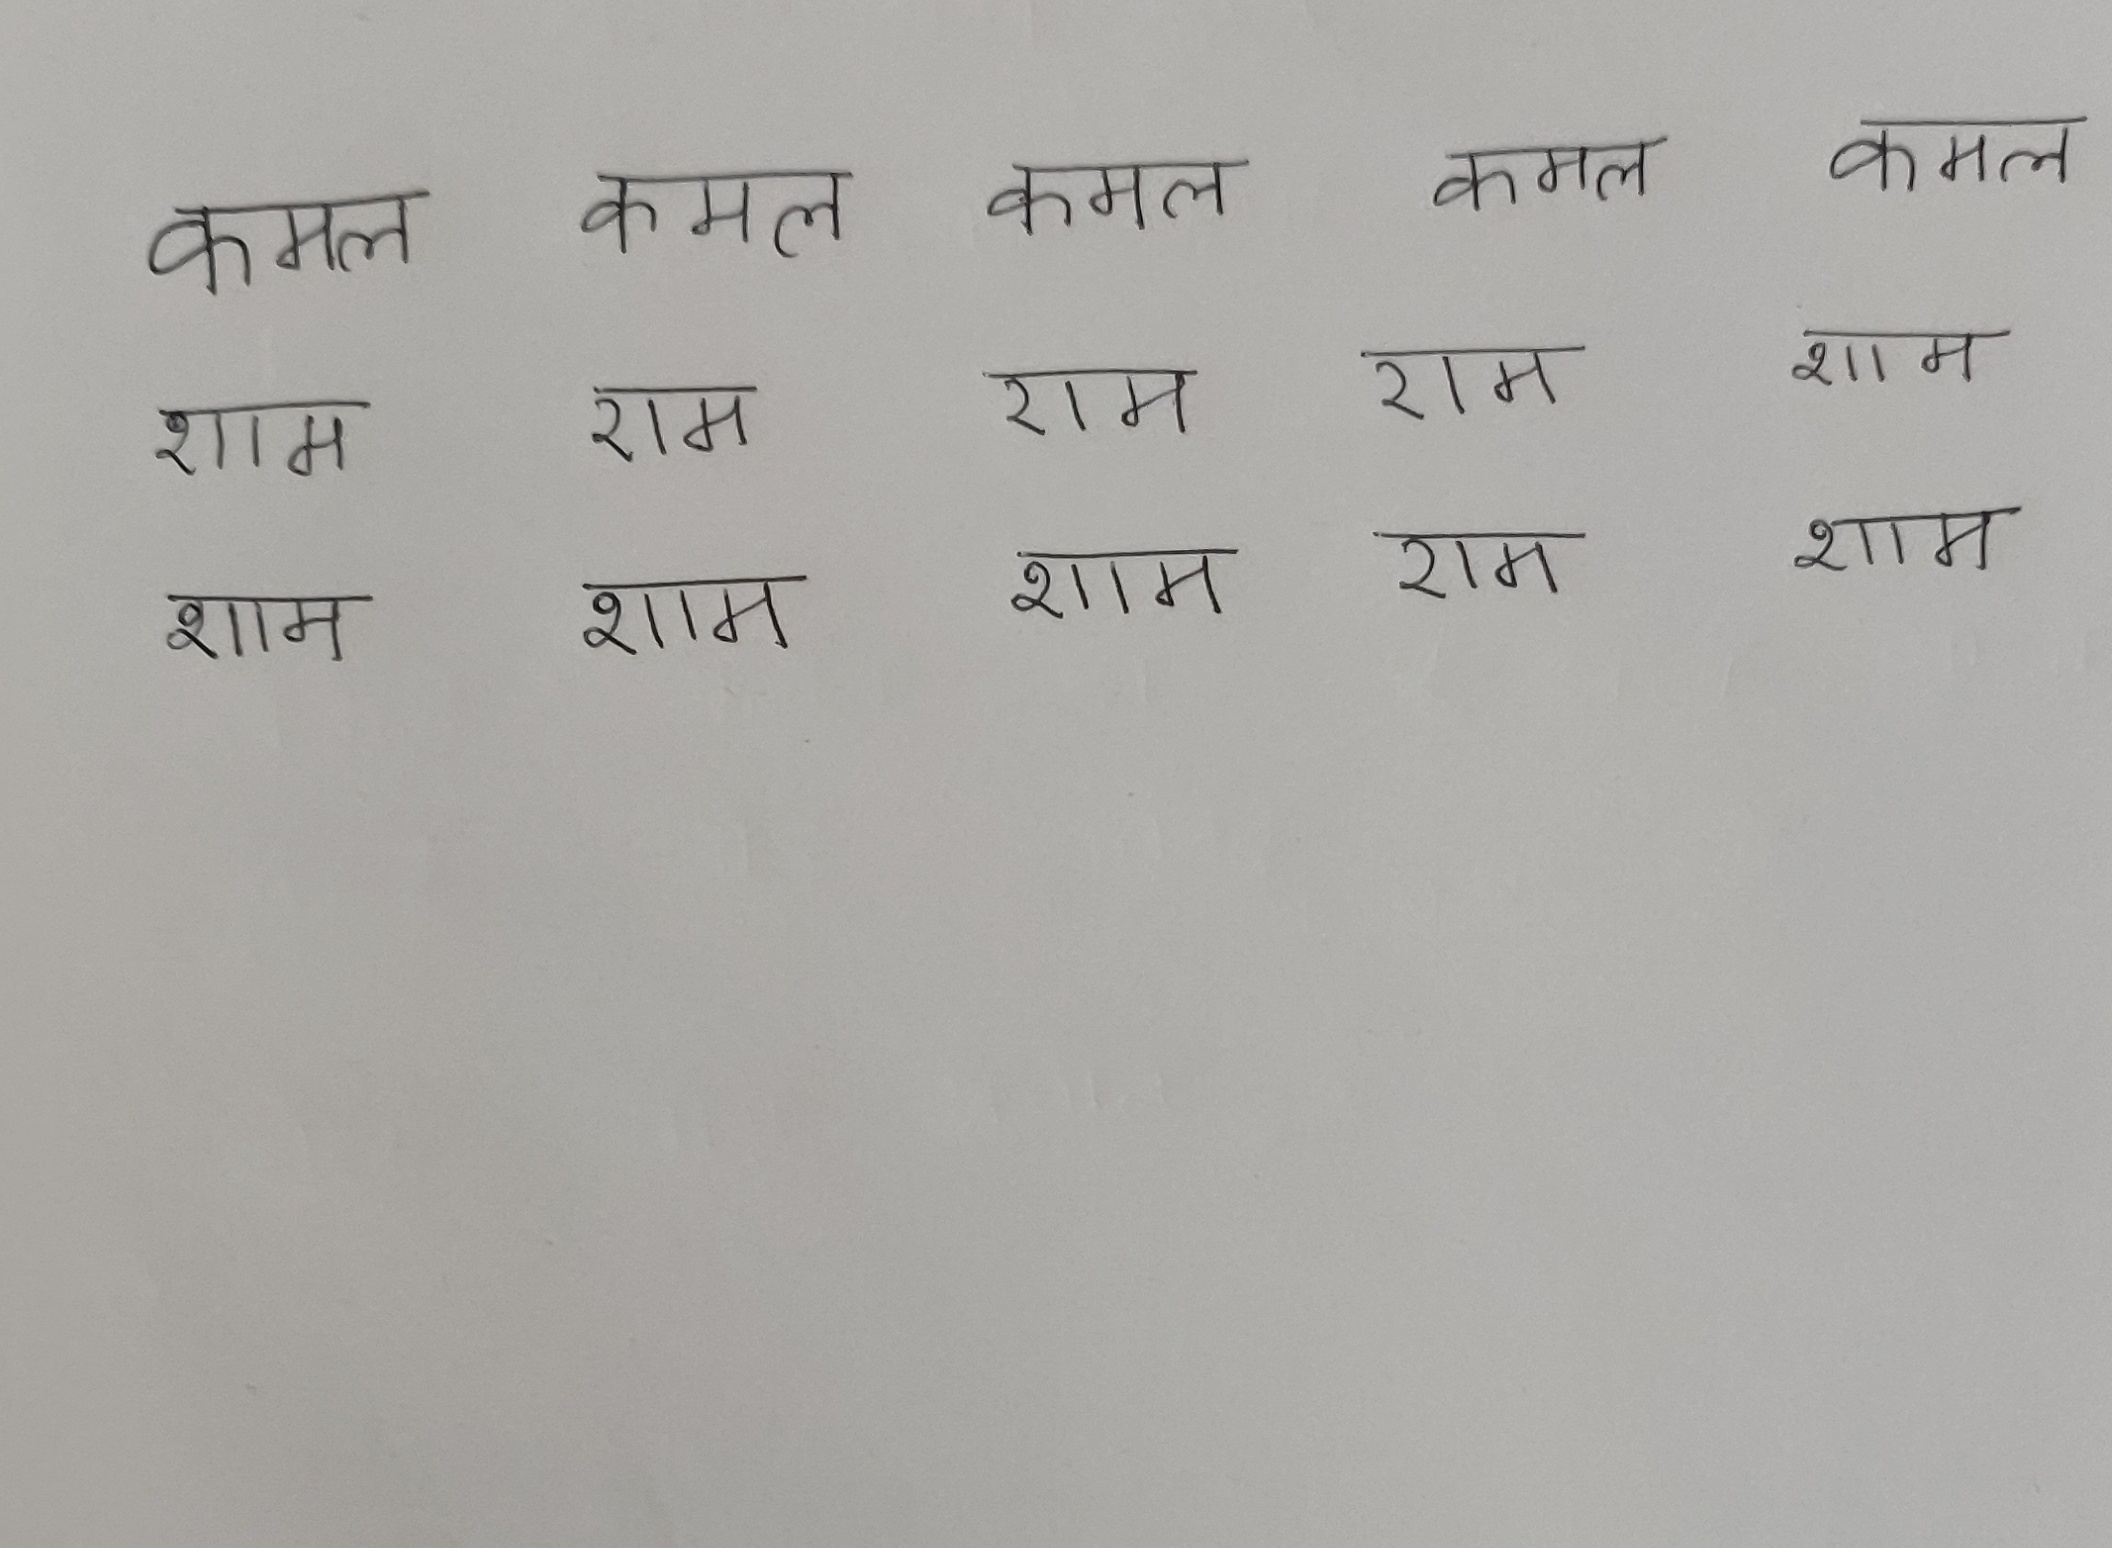 कमल कमल कमल कमल कमल
शाम राम राम राम शाम
शाम शाम शाम राम शाम